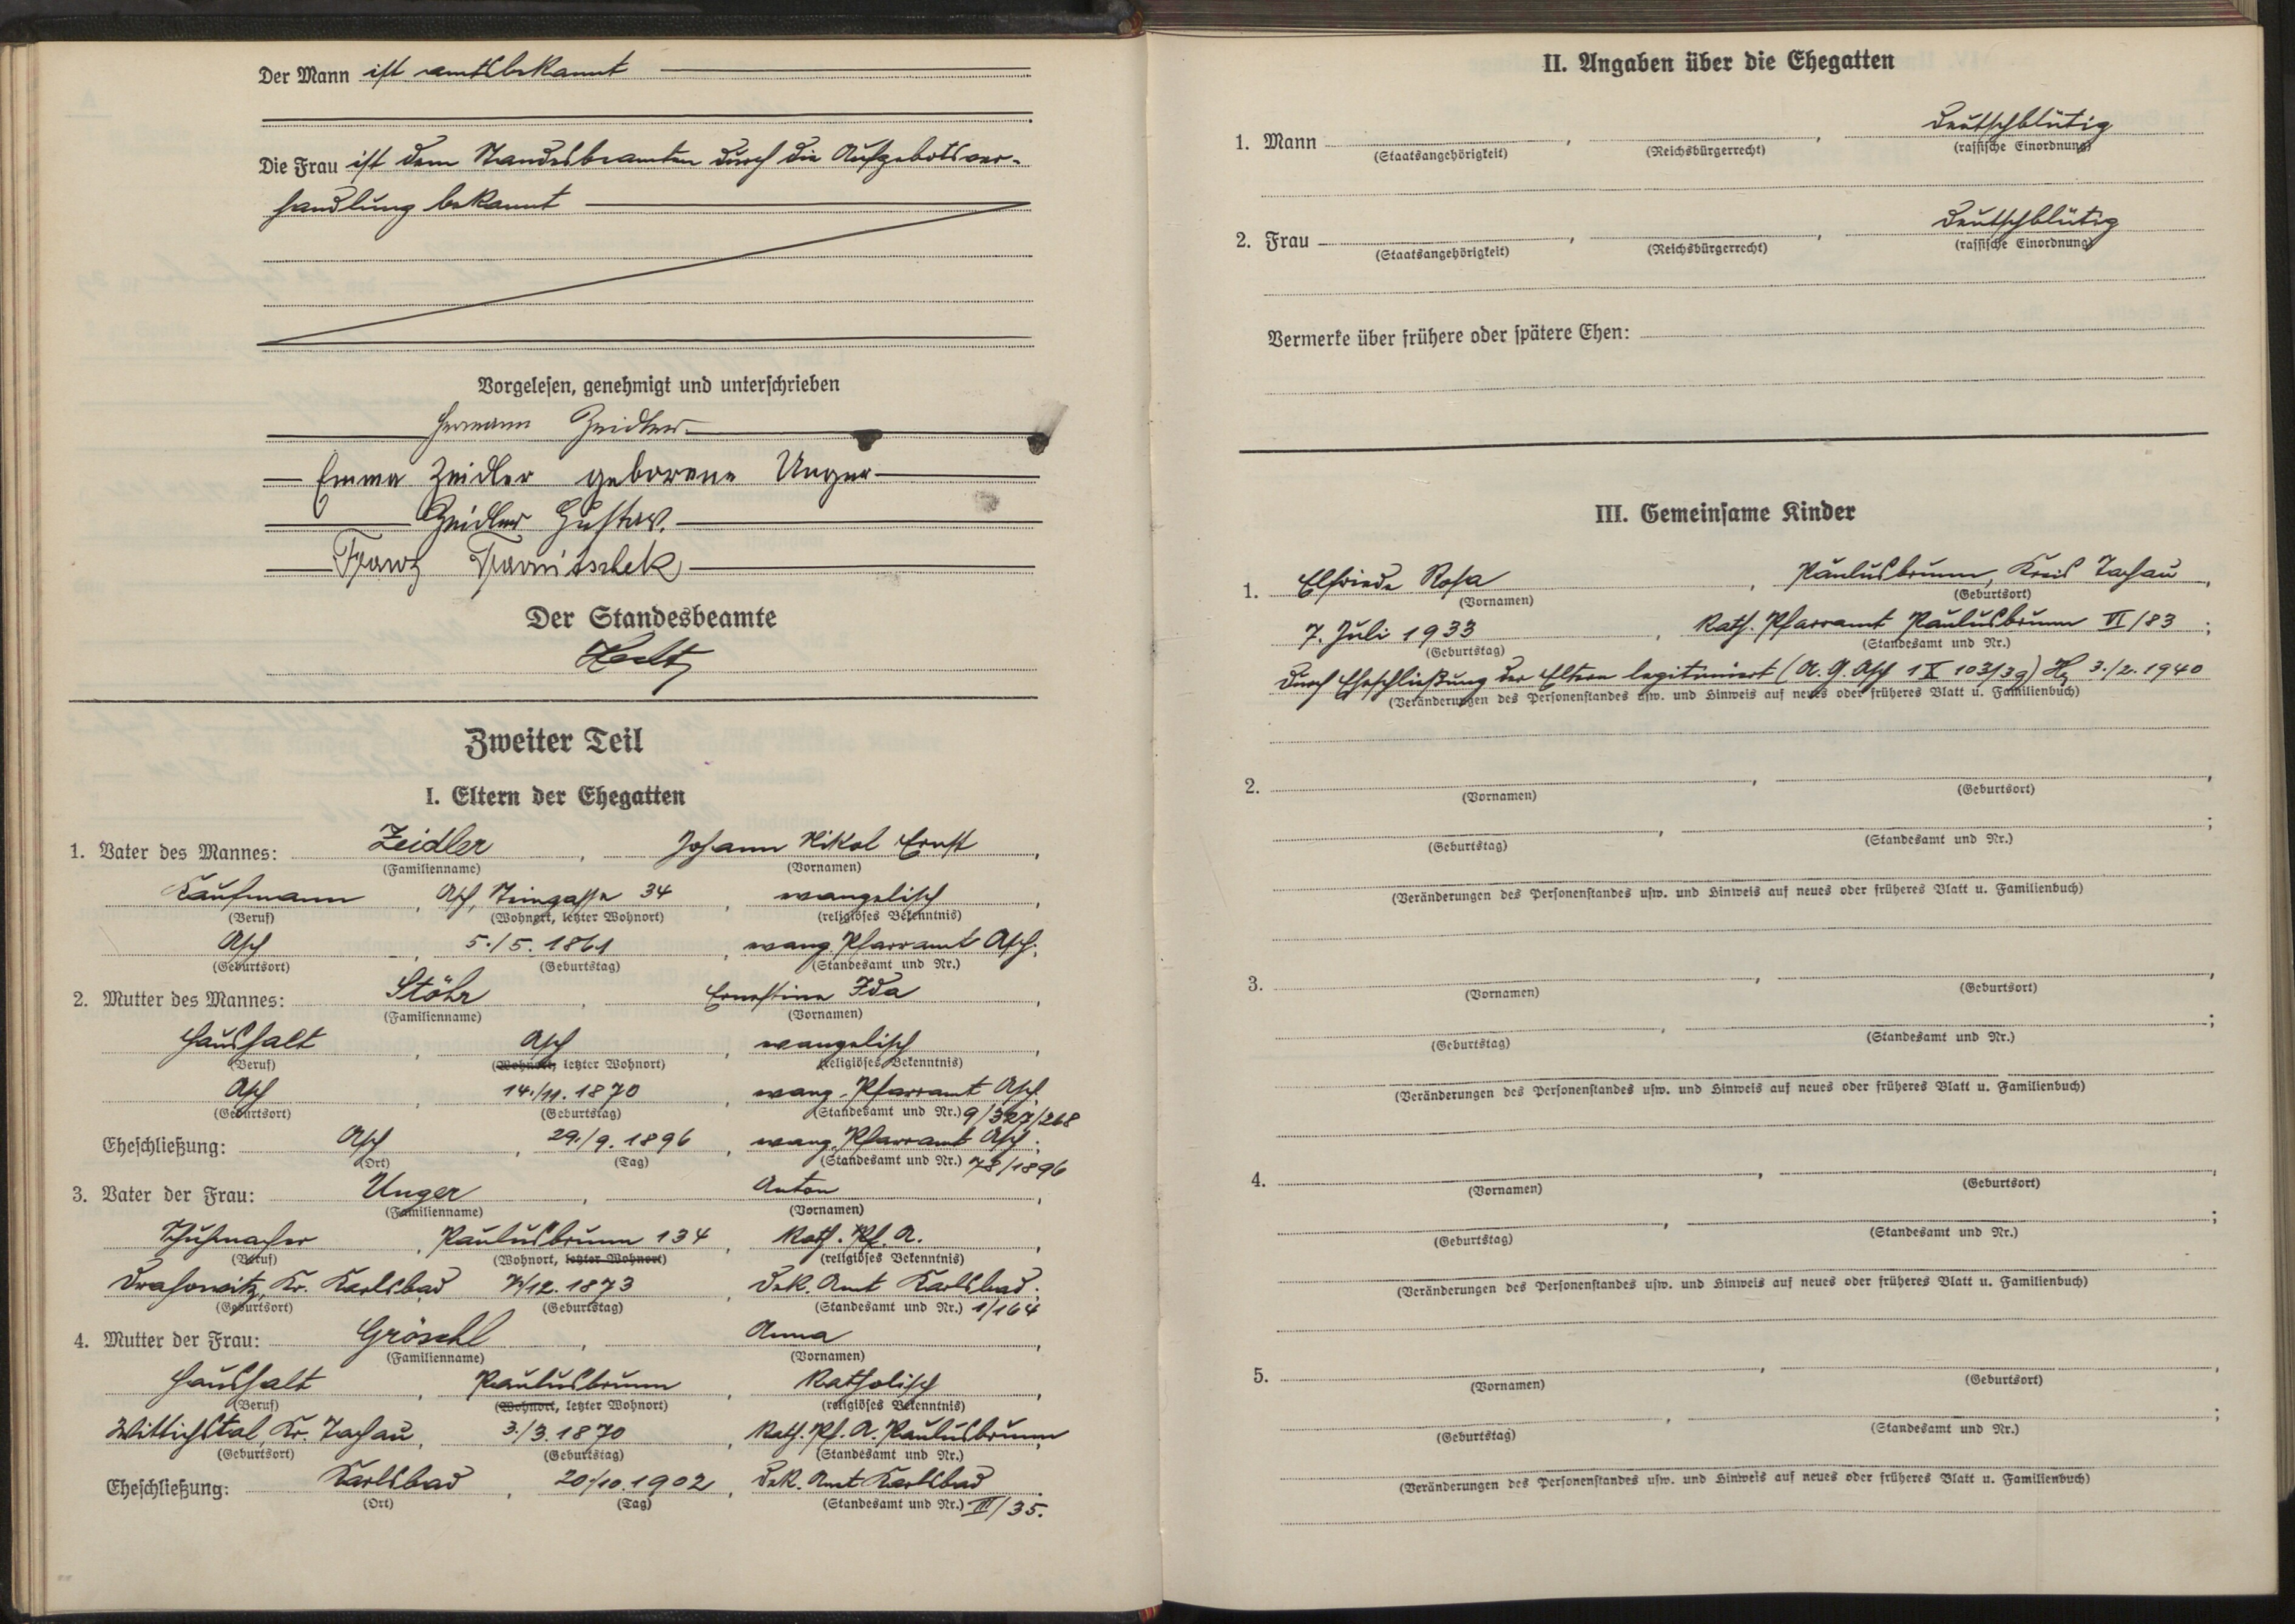 Der Mann ist amtsbekannt
Die Frau ist dem Standesbeamten durch die Aufgebotsver-
handlung bekannt
Vorgelesen, genehmigt und unterschrieben
Hermann Zeidler
Emma Zeidler geborene Unger
Zeidler Gustav.
Franz
Der Standesbeamte
Zweiter Teil
I. Eltern der Ehegatten
1. Vater des Mannes: Zeidler, Johann Nikol Ernst,
(Familienname) (Vornamen)
Kaufmann, Asch, Steingasse 34, evangelisch,
(Beruf) (Wohnort, letzter Wohnort) (religiöses Bekenntnis)
Asch, 5./5. 1861, evang. Pfarramt Asch.
(Geburtsort) (Geburtstag) (Standesamt und Nr.)
2. Mutter des Mannes: Stöhr, Ernestine Ida,
(Familienname) (Vornamen)
Haushalt, Asch, evangelisch,
(Beruf) (Wohnort, letzter Wohnort) (religiöses Bekenntnis)
Asch, 14./11. 1870, evang. Pfarramt Asch.
(Geburtsort) (Geburtstag) (Standesamt und Nr.) 9/327/268
Eheschließung: Asch, 29./9. 1896, evang. Pfarramt Asch.
(Ort) (Tag) (Standesamt und Nr.) 78/1896
3. Vater der Frau: Unger, Anton,
(Familienname) (Vornamen)
Schuhmacher, Paulusbrunn 134, Kath. Pf. A.,
(Beruf) (Wohnort, letzter Wohnort) (religiöses Bekenntnis)
Drahowitz, Kr. Karlsbad /12. 1873, Dek. Amt Karlsbad;
(Geburtsort) (Geburtstag) (Standesamt und Nr.) 1/164
4. Mutter der Frau: Gröschl, Anna,
(Familienname) (Vornamen)
Haushalt, Paulusbrunn, Katholisch,
(Beruf) (Wohnort, letzter Wohnort) (religiöses Bekenntnis)
Wittichstal, Kr. Tachau, 3./3. 1870, Kath. Pf. A. Paulusbrunn
(Geburtsort) (Geburtstag) (Standesamt und Nr.)
Eheschließung: Karlsbad, 20./10. 1902, Dek. Amt Karlsbad
(Ort) (Tag) (Standesamt und Nr.) III/35.
II. Angaben über die Ehegatten
1. Mann , , Deutschblütig
(Staatsangehörigkeit) (Reichsbürgerrecht) (rassische Einordnung)
2. Frau , , Deutschblütig
(Staatsangehörigkeit) (Reichsbürgerrecht) (rassische Einordnung)
Vermerke über frühere oder spätere Ehen:
III. Gemeinsame Kinder
1. Elfriede Rosa, Paulusbrunn, Kreis Tachau,
(Vornamen) (Geburtsort)
7. Juli 1933, Kath. Pfarramt Paulusbrunn VI/83;
(Geburtstag) (Standesamt und Nr.)
durch Eheschließung der Eltern legitimiert (A. G. Asch 1 X 103/39) Hz 3./2. 1940
(Veränderungen des Personenstandes usw. und Hinweis auf neues oder früheres Blatt u. Familienbuch)
2. , ,
(Vornamen) (Geburtsort)
, ;
(Geburtstag) (Standesamt und Nr.)
(Veränderungen des Personenstandes usw. und Hinweis auf neues oder früheres Blatt u. Familienbuch)
3. , ,
(Vornamen) (Geburtsort)
, ;
(Geburtstag) (Standesamt und Nr.)
(Veränderungen des Personenstandes usw. und Hinweis auf neues oder früheres Blatt u. Familienbuch)
4. , ,
(Vornamen) (Geburtsort)
, ;
(Geburtstag) (Standesamt und Nr.)
(Veränderungen des Personenstandes usw. und Hinweis auf neues oder früheres Blatt u. Familienbuch)
5. , ,
(Vornamen) (Geburtsort)
, ;
(Geburtstag) (Standesamt und Nr.)
(Veränderungen des Personenstandes usw. und Hinweis auf neues oder früheres Blatt u. Familienbuch)